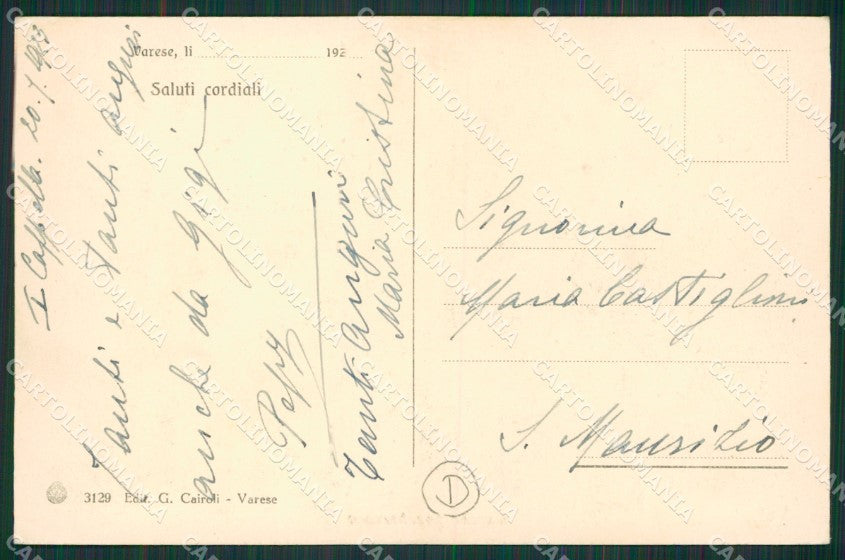 Varese, li 192
Saluti cordiali
I Cappella. 20.7.
Tanti e Tanti auguri
anche da Gigi
Pepy
Tanti Auguri
Maria Cristina
Signorina
Maria Castiglioni
S. Maurizio
D
3129 Edit. G. Cairoli - Varese
CARTOLINOMANIA